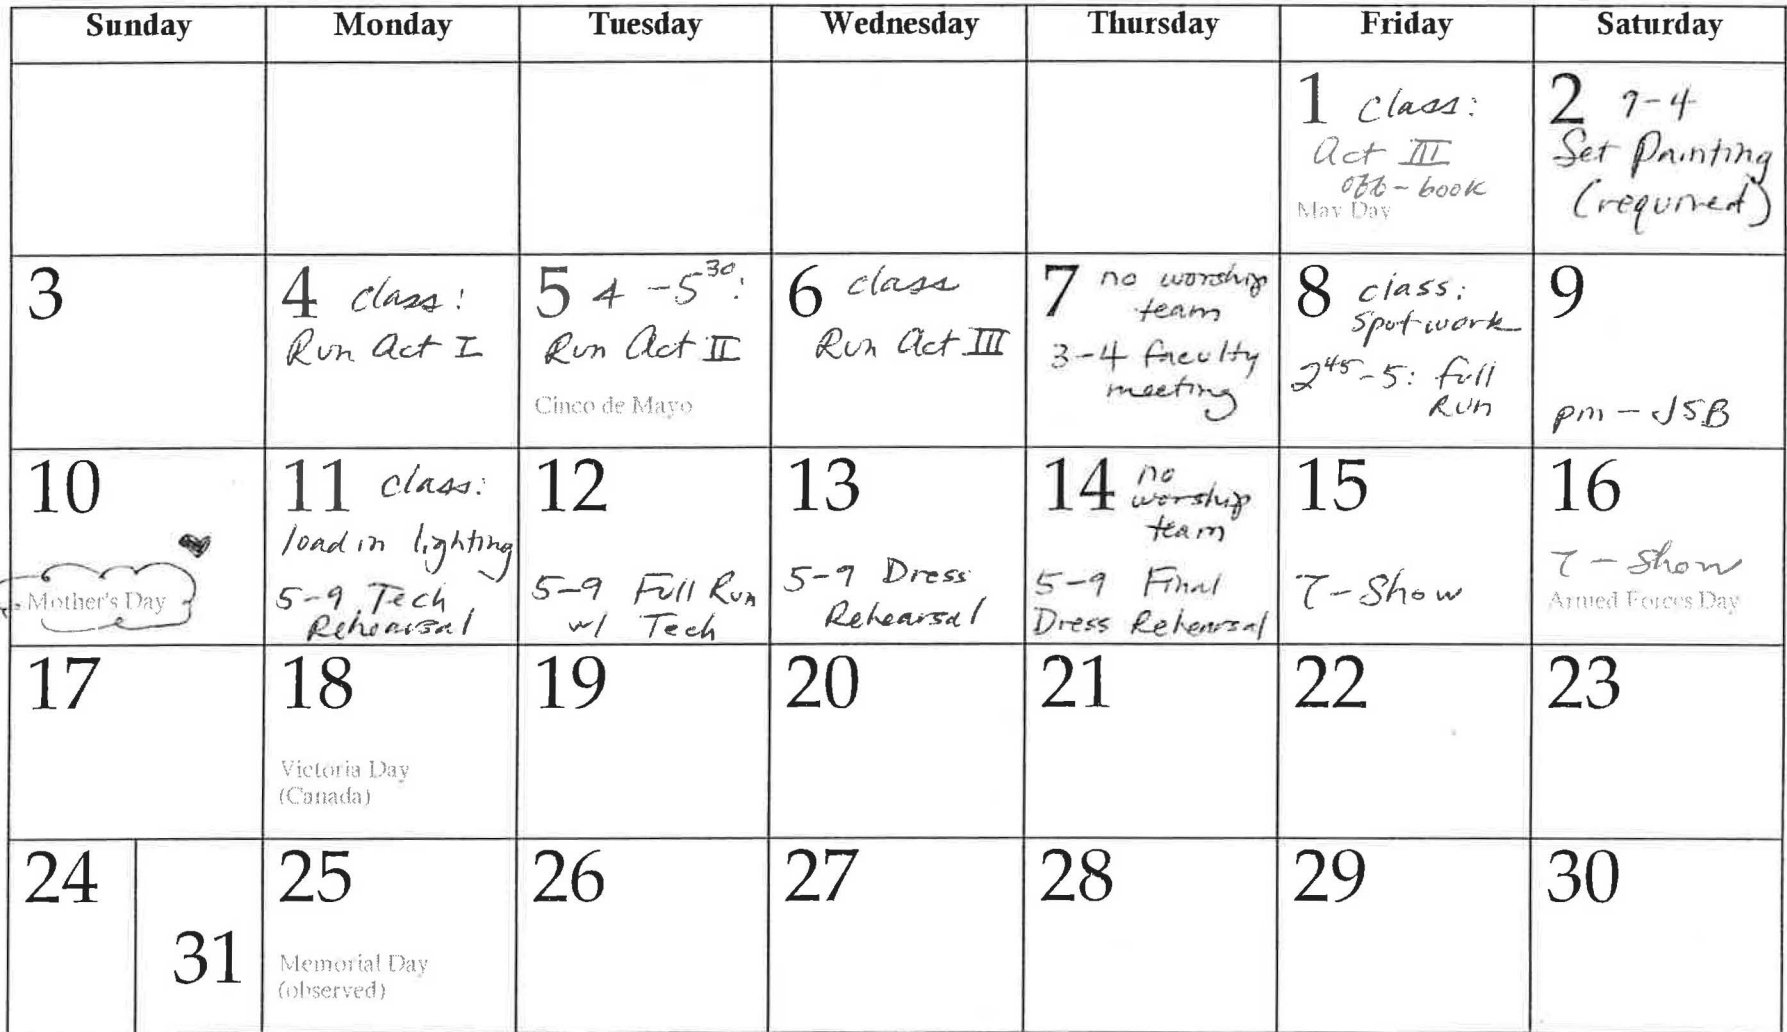 Sunday Monday Tuesday Wednesday Thursday Friday Saturday
1 class:
Act III
off-book
May Day
2 9-4
Set Painting
(required)
3
4 class:
Run Act I
5 4-5³⁰:
Run Act II
Cinco de Mayo
6 class
Run Act III
7 no worship
team
3-4 faculty
meeting
8 class:
Spot work
2⁴⁵-5: full
Run
9
pm - JSB
10
Mother's Day
11 class:
load in lighting
5-9 Tech
Rehearsal
12
5-9 Full Run
w/ Tech
13
5-9 Dress
Rehearsal
14 no
worship
team
5-9 Final
Dress Rehearsal
15
7-Show
16
7-Show
Armed Forces Day
17
18
Victoria Day
(Canada)
19
20
21
22
23
24
31
25
Memorial Day
(observed)
26
27
28
29
30